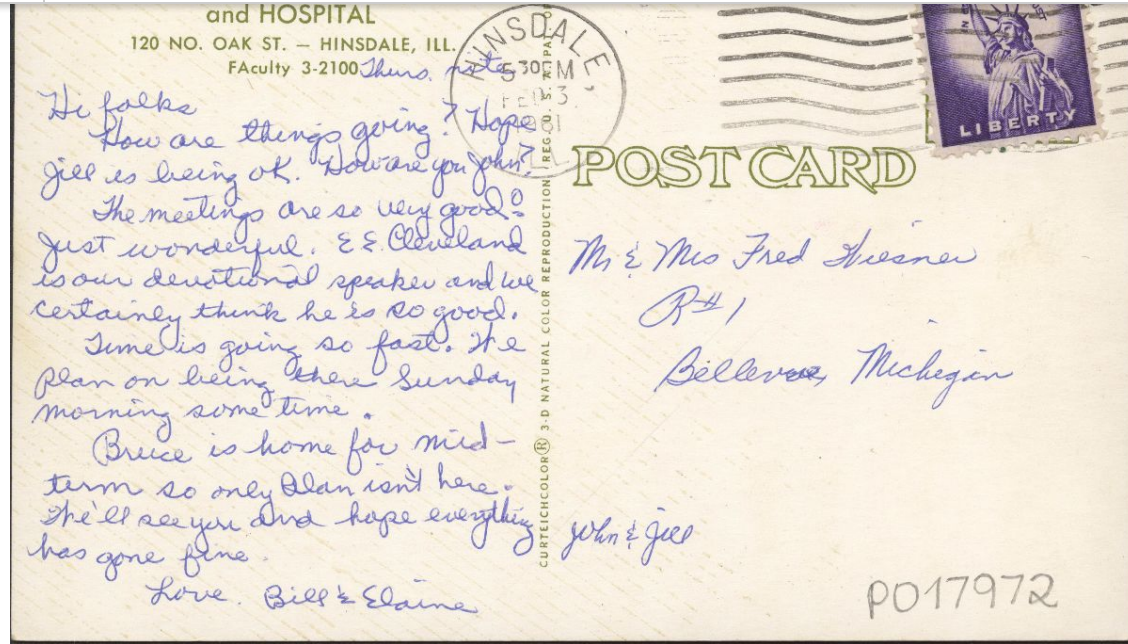 and HOSPITAL
120 NO. OAK ST. — HINSDALE, ILL.
FAculty 3-2100
Thurs. nite
Hi folks
How are things going? Hope
Jill is being OK. How are you John?
The meetings are so very good!
Just wonderful. E E Cleveland
is our devotional speaker and we
certainly think he is so good.
Time is going so fast. We
plan on being there Sunday
morning some time.
Bruce is home for mid-
term so only Alan isn't here.
We'll see you and hope everything
has gone fine.
Love. Bill & Elaine
CURTEICHCOLOR® 3-D NATURAL COLOR REPRODUCTION (REG. U. S. A. PAT.
HINSDALE
530 PM
FEB 3
1961
ILL
LIBERTY
POST CARD
Mr & Mrs Fred Wiesner
R#1
Bellevue, Michigan
John & Jill
PO17972